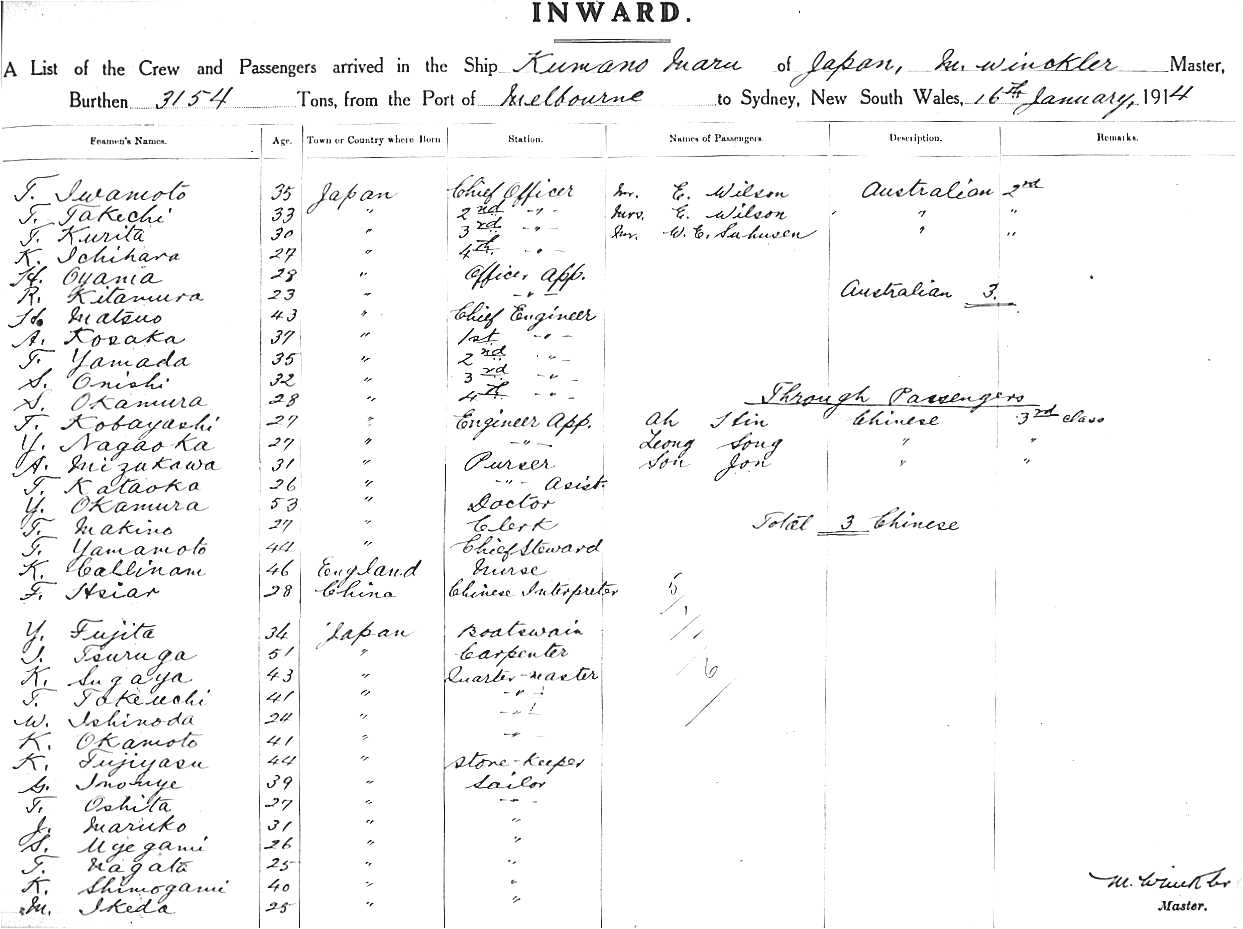 INWARD.
A List of the Crew and Passengers arrived in the Ship Kumano Maru of Japan, M. Winckler Master,
Burthen 3154 Tons, from the Port of Melbourne to Sydney, New South Wales, 16th January, 1914
Seamen's Names. Age. Town or Country where Born Station. Names of Passengers. Description. Remarks.
T. Iwamoto 35 Japan Chief Officer Mr. E. Wilson Australian 2nd
T. Takechi 33 " 2nd -"- Mrs. E. Wilson " "
T. Kurita 30 " 3rd -"- Mr. W. E. Suhusen " "
K. Ichihara 27 " 4th -"-
H. Oyama 28 " Officer App.
R. Kitamura 23 " -"- Australian 3.
H. Matsuo 43 " Chief Engineer
A. Kosaka 37 " 1st -"-
T. Yamada 35 " 2nd -"-
S. Onishi 32 " 3rd -"-
S. Okamura 28 " 4th -"- Through Passengers
T. Kobayashi 27 " Engineer App. Ah Hin Chinese 3rd class
Y. Nagaoka 27 " -"- Leong Song " "
A. Mizukawa 31 " Purser Son Jon " "
T. Kataoka 26 " -"- Asist.
Y. Okamura 53 " Doctor
T. Makino 27 " Clerk Total 3 Chinese
T. Yamamoto 44 " Chief Steward
K. Callinam 46 England Nurse
F. Hsiar 28 China Chinese Interpreter 5
/1
Y. Fujita 34 Japan Boatswain /1
J. Tsuruga 51 " Carpenter
K. Sugaya 43 " Quarter-master /6
T. Takeuchi 41 " -"-
W. Ishinoda 24 " -"- /
K. Okamoto 41 " -"-
K. Fujiyasu 44 " Store-keeper
G. Inouye 39 " Sailor
T. Oshita 27 " -"-
J. Maruko 31 " "
S. Uyegami 26 " "
T. Nagata 25 " "
K. Shimogami 40 " " M. Winckler
M. Ikeda 25 " " Master.